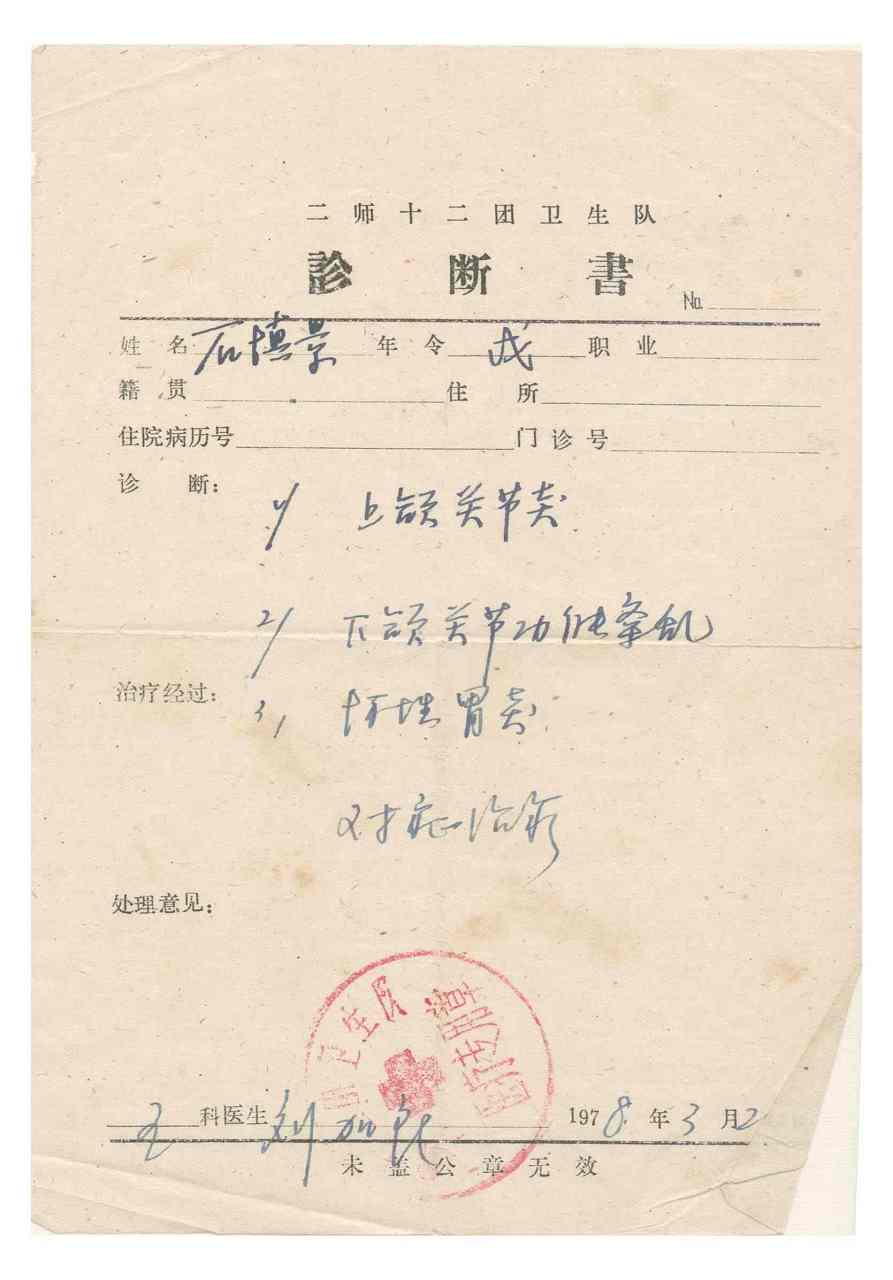 二师十二团卫生队
診断書
No.
姓名 石慎景 年令 成 职业
籍贯 住所
住院病历号 门诊号
诊断:
1) 上颌关节炎
2) 下颌关节功能紊乱
治疗经过:
3) 慢性胃炎
对症治疗
处理意见:
卫生队
医疗
科医生 刘 1978年3月2
未盖公章无效